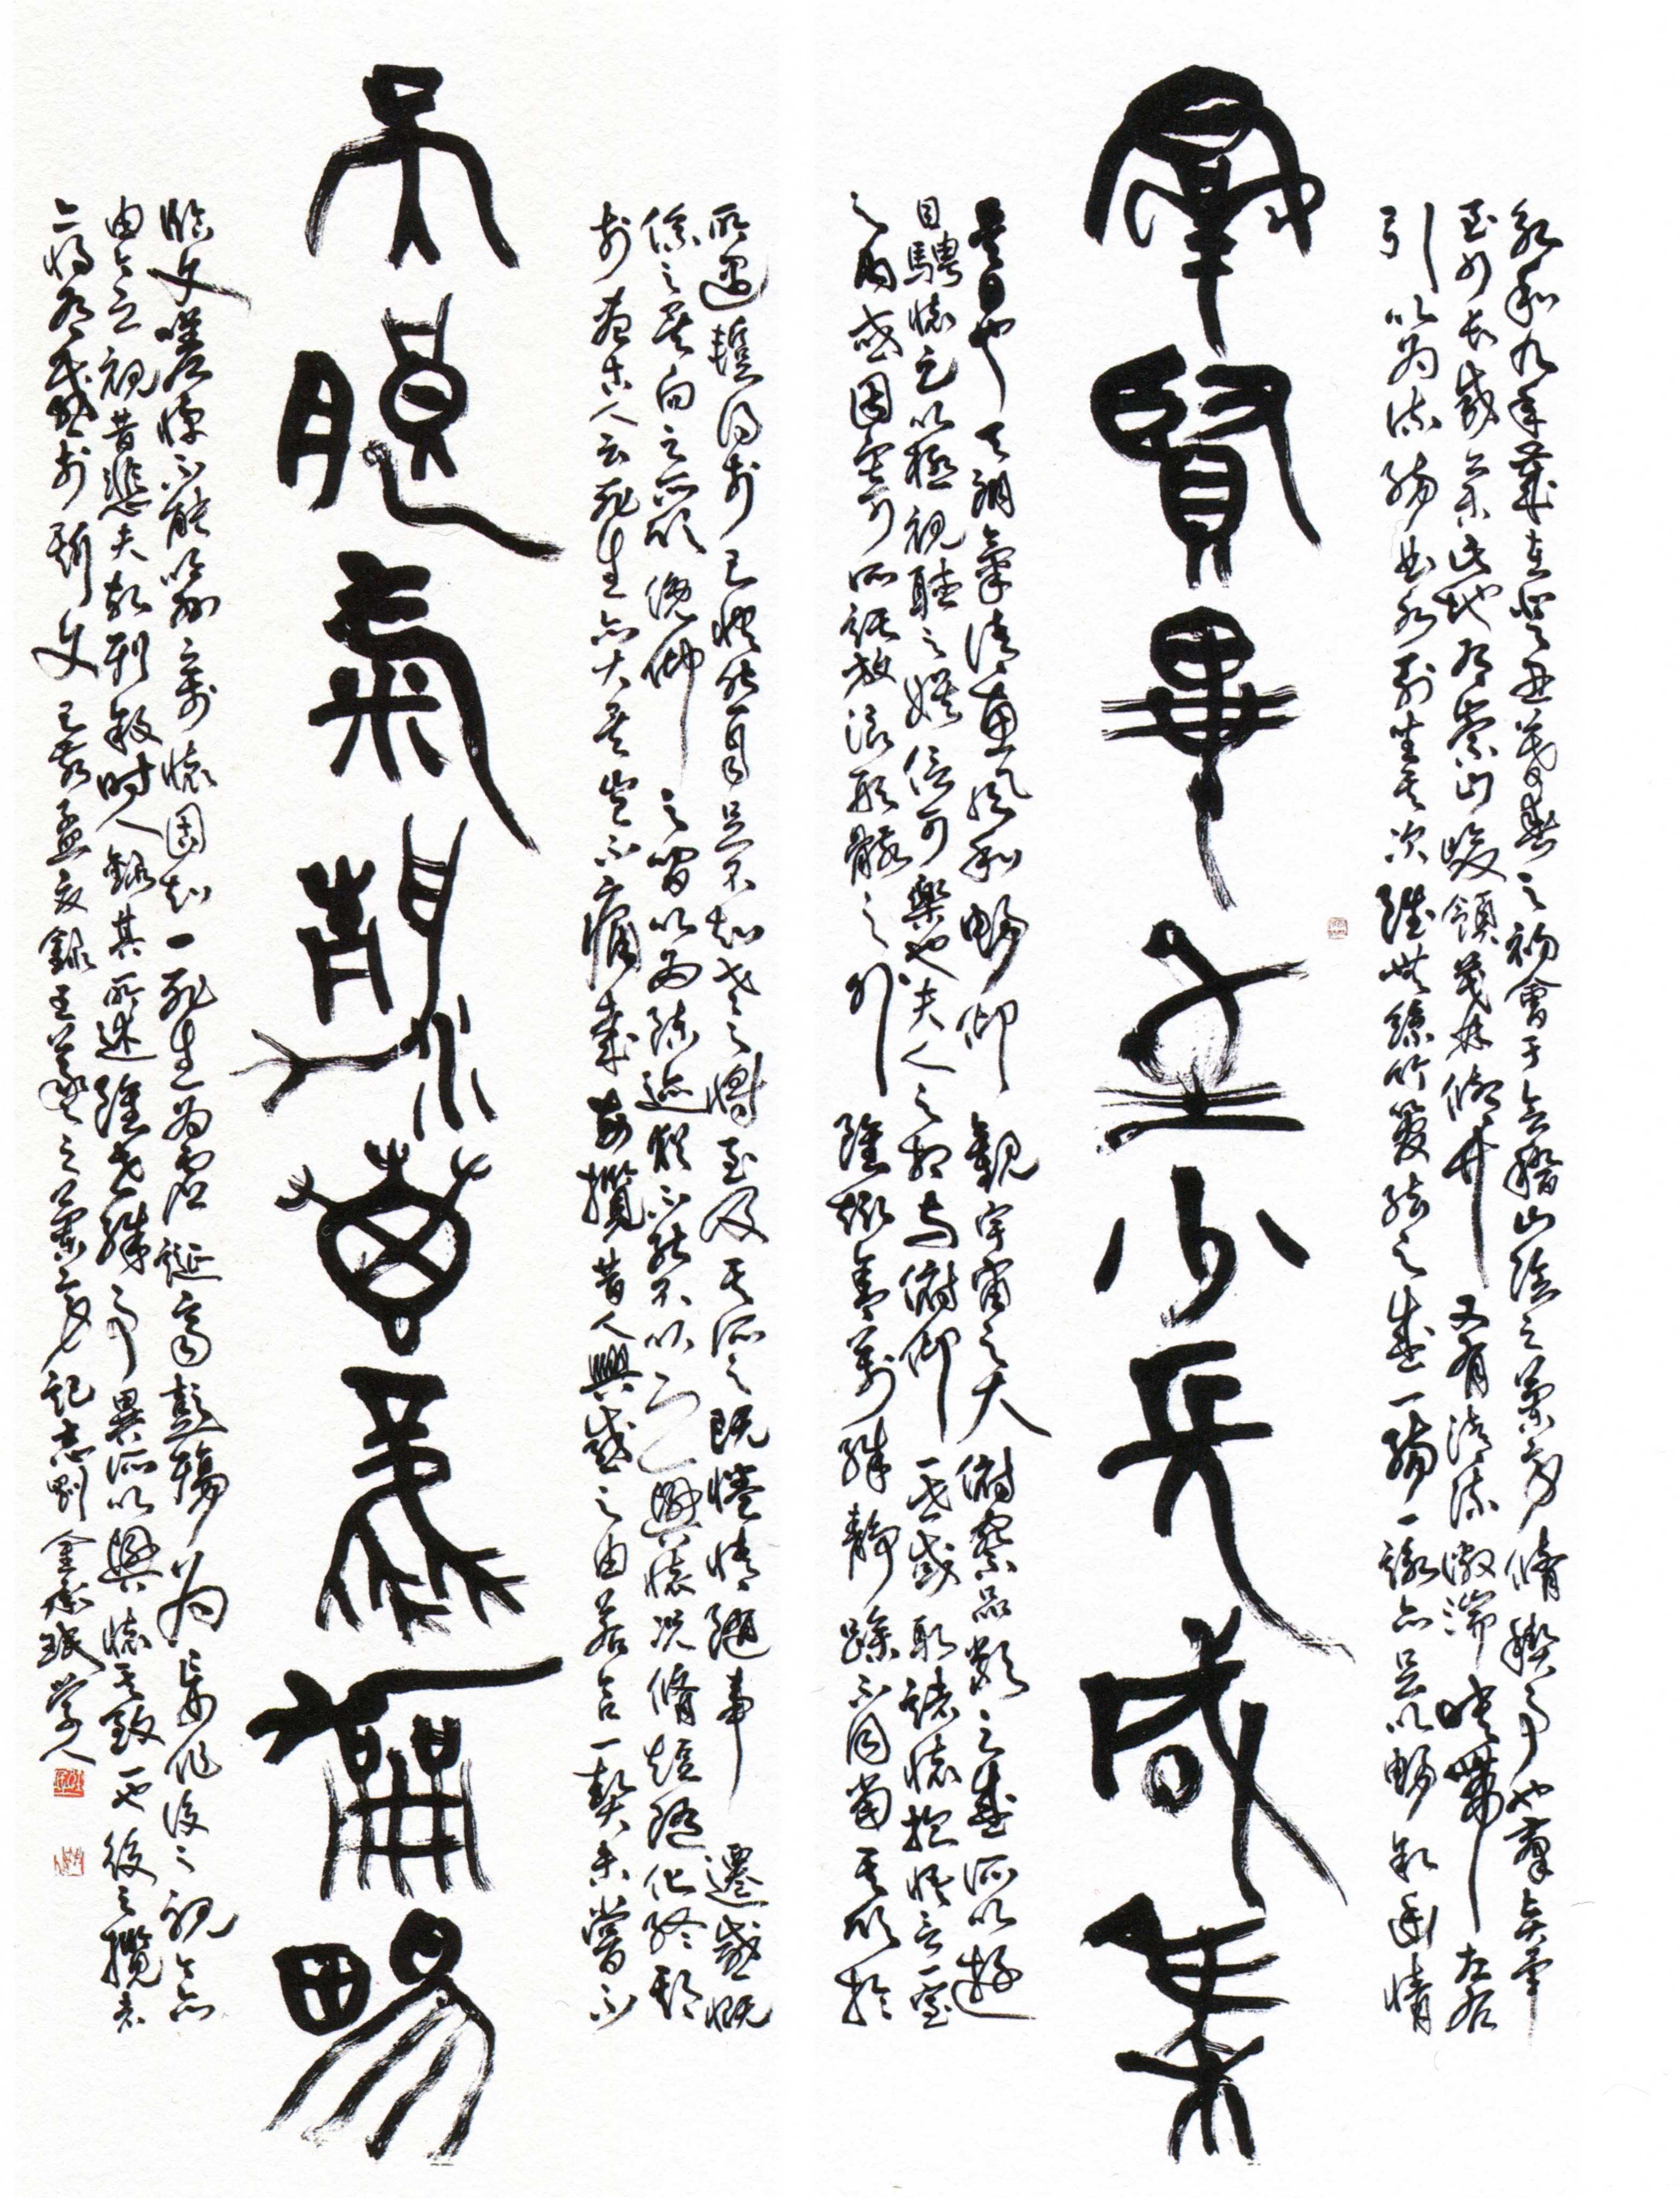 永和九年歲在癸丑莫春之初會于會稽山陰之蘭亭脩稧事也群賢畢
至少長咸集此地有崇山峻領茂林脩竹又有清流激湍暎帶左右
引以為流觴曲水列坐其次雖無絲竹管弦之盛一觴一詠亦足以暢敘幽情
群賢畢至少長咸集
是日也天朗氣清惠風和暢仰觀宇宙之大俯察品類之盛所以遊
目騁懷足以極視聽之娛信可樂也夫人之相與俯仰一世或取諸懷抱悟言一室
之內或因寄所託放浪形骸之外雖趣舍萬殊靜躁不同當其欣於
所遇暫得於己快然自足不知老之將至及其所之既惓情隨事遷感慨
係之矣向之所欣俛仰之間以為陳迹猶不能不以之興懷況脩短隨化終期
於盡古人云死生亦大矣豈不痛哉每攬昔人興感之由若合一契未嘗不
天朗氣清惠風和暢
臨文嗟悼不能喻之於懷固知一死生為虛誕齊彭殤為妄作後之視今亦
由今之視昔悲夫故列敘時人錄其所述雖世殊事異所以興懷其致一也後之攬者
亦將有感於斯文 己亥孟夏錄王羲之蘭亭記